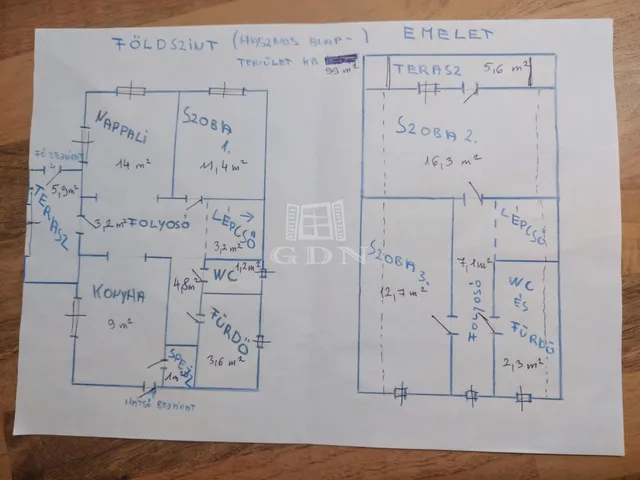 FÖLDSZINT (HASZNOS ALAP-
TERÜLET KB.
99 m²)
EMELET
TERASZ 5,6 m²
NAPPALI
14 m²
SZOBA
1.
11,4 m²
SZOBA 2.
16,3 m²
5,9 m²
TERASZ
3,2 m² FOLYOSÓ
LÉPCSŐ
3,2 m²
WC 1,2 m²
4,8 m²
KONYHA
9 m²
FÜRDŐ
3,6 m²
1 m²
HÁTSÓ BEJÁRAT
GDN
LÉPCSŐ
SZOBA 3.
12,7 m²
7,1 m²
FOLYOSÓ
WC
ÉS
FÜRDŐ
2,3 m²